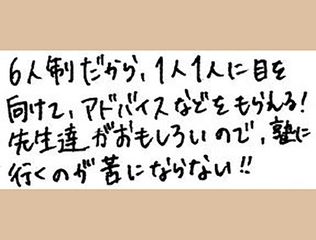 6人制だから、1人1人に目を
向けて、アドバイスなどをもらえる!
先生達がおもしろいので、塾に
行くのが苦にならない!!